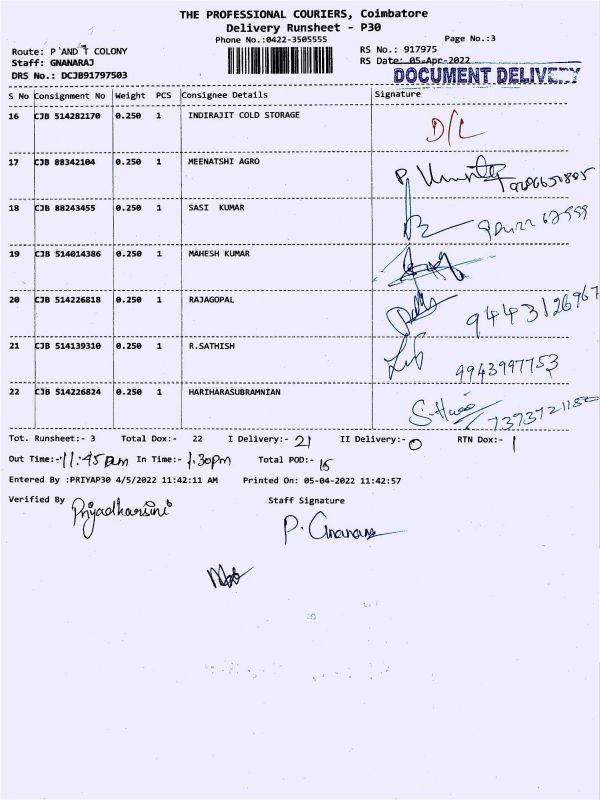 THE PROFESSIONAL COURIERS, Coimbatore
Delivery Runsheet - P30
Phone No.:0422-3505555
Page No.:3
Route: P AND T COLONY
RS No.: 917975
Staff: GNANARAJ
RS Date: 05-Apr-2022
DRS No.: DCJB91797503
DOCUMENT DELIVERY
S No Consignment No Weight PCS Consignee Details Signature
16 CJB 514282170 0.250 1 INDIRAJIT COLD STORAGE D/L
17 CJB 88342104 0.250 1 MEENATSHI AGRO
18 CJB 88243455 0.250 1 SASI KUMAR
19 CJB 514014386 0.250 1 MAHESH KUMAR
20 CJB 514226818 0.250 1 RAJAGOPAL 9443126967
21 CJB 514139310 0.250 1 R.SATHISH 9943997753
22 CJB 514226824 0.250 1 HARIHARASUBRAMNIAN
Tot. Runsheet:- 3 Total Dox:- 22 I Delivery:- 21 II Delivery:- 0 RTN Dox:- 1
Out Time:- 11.45 am In Time:- 1.30pm Total POD:- 15
Entered By :PRIYAP30 4/5/2022 11:42:11 AM Printed On: 05-04-2022 11:42:57
Verified By Priyadharsini Staff Signature
P. Gnanaraj